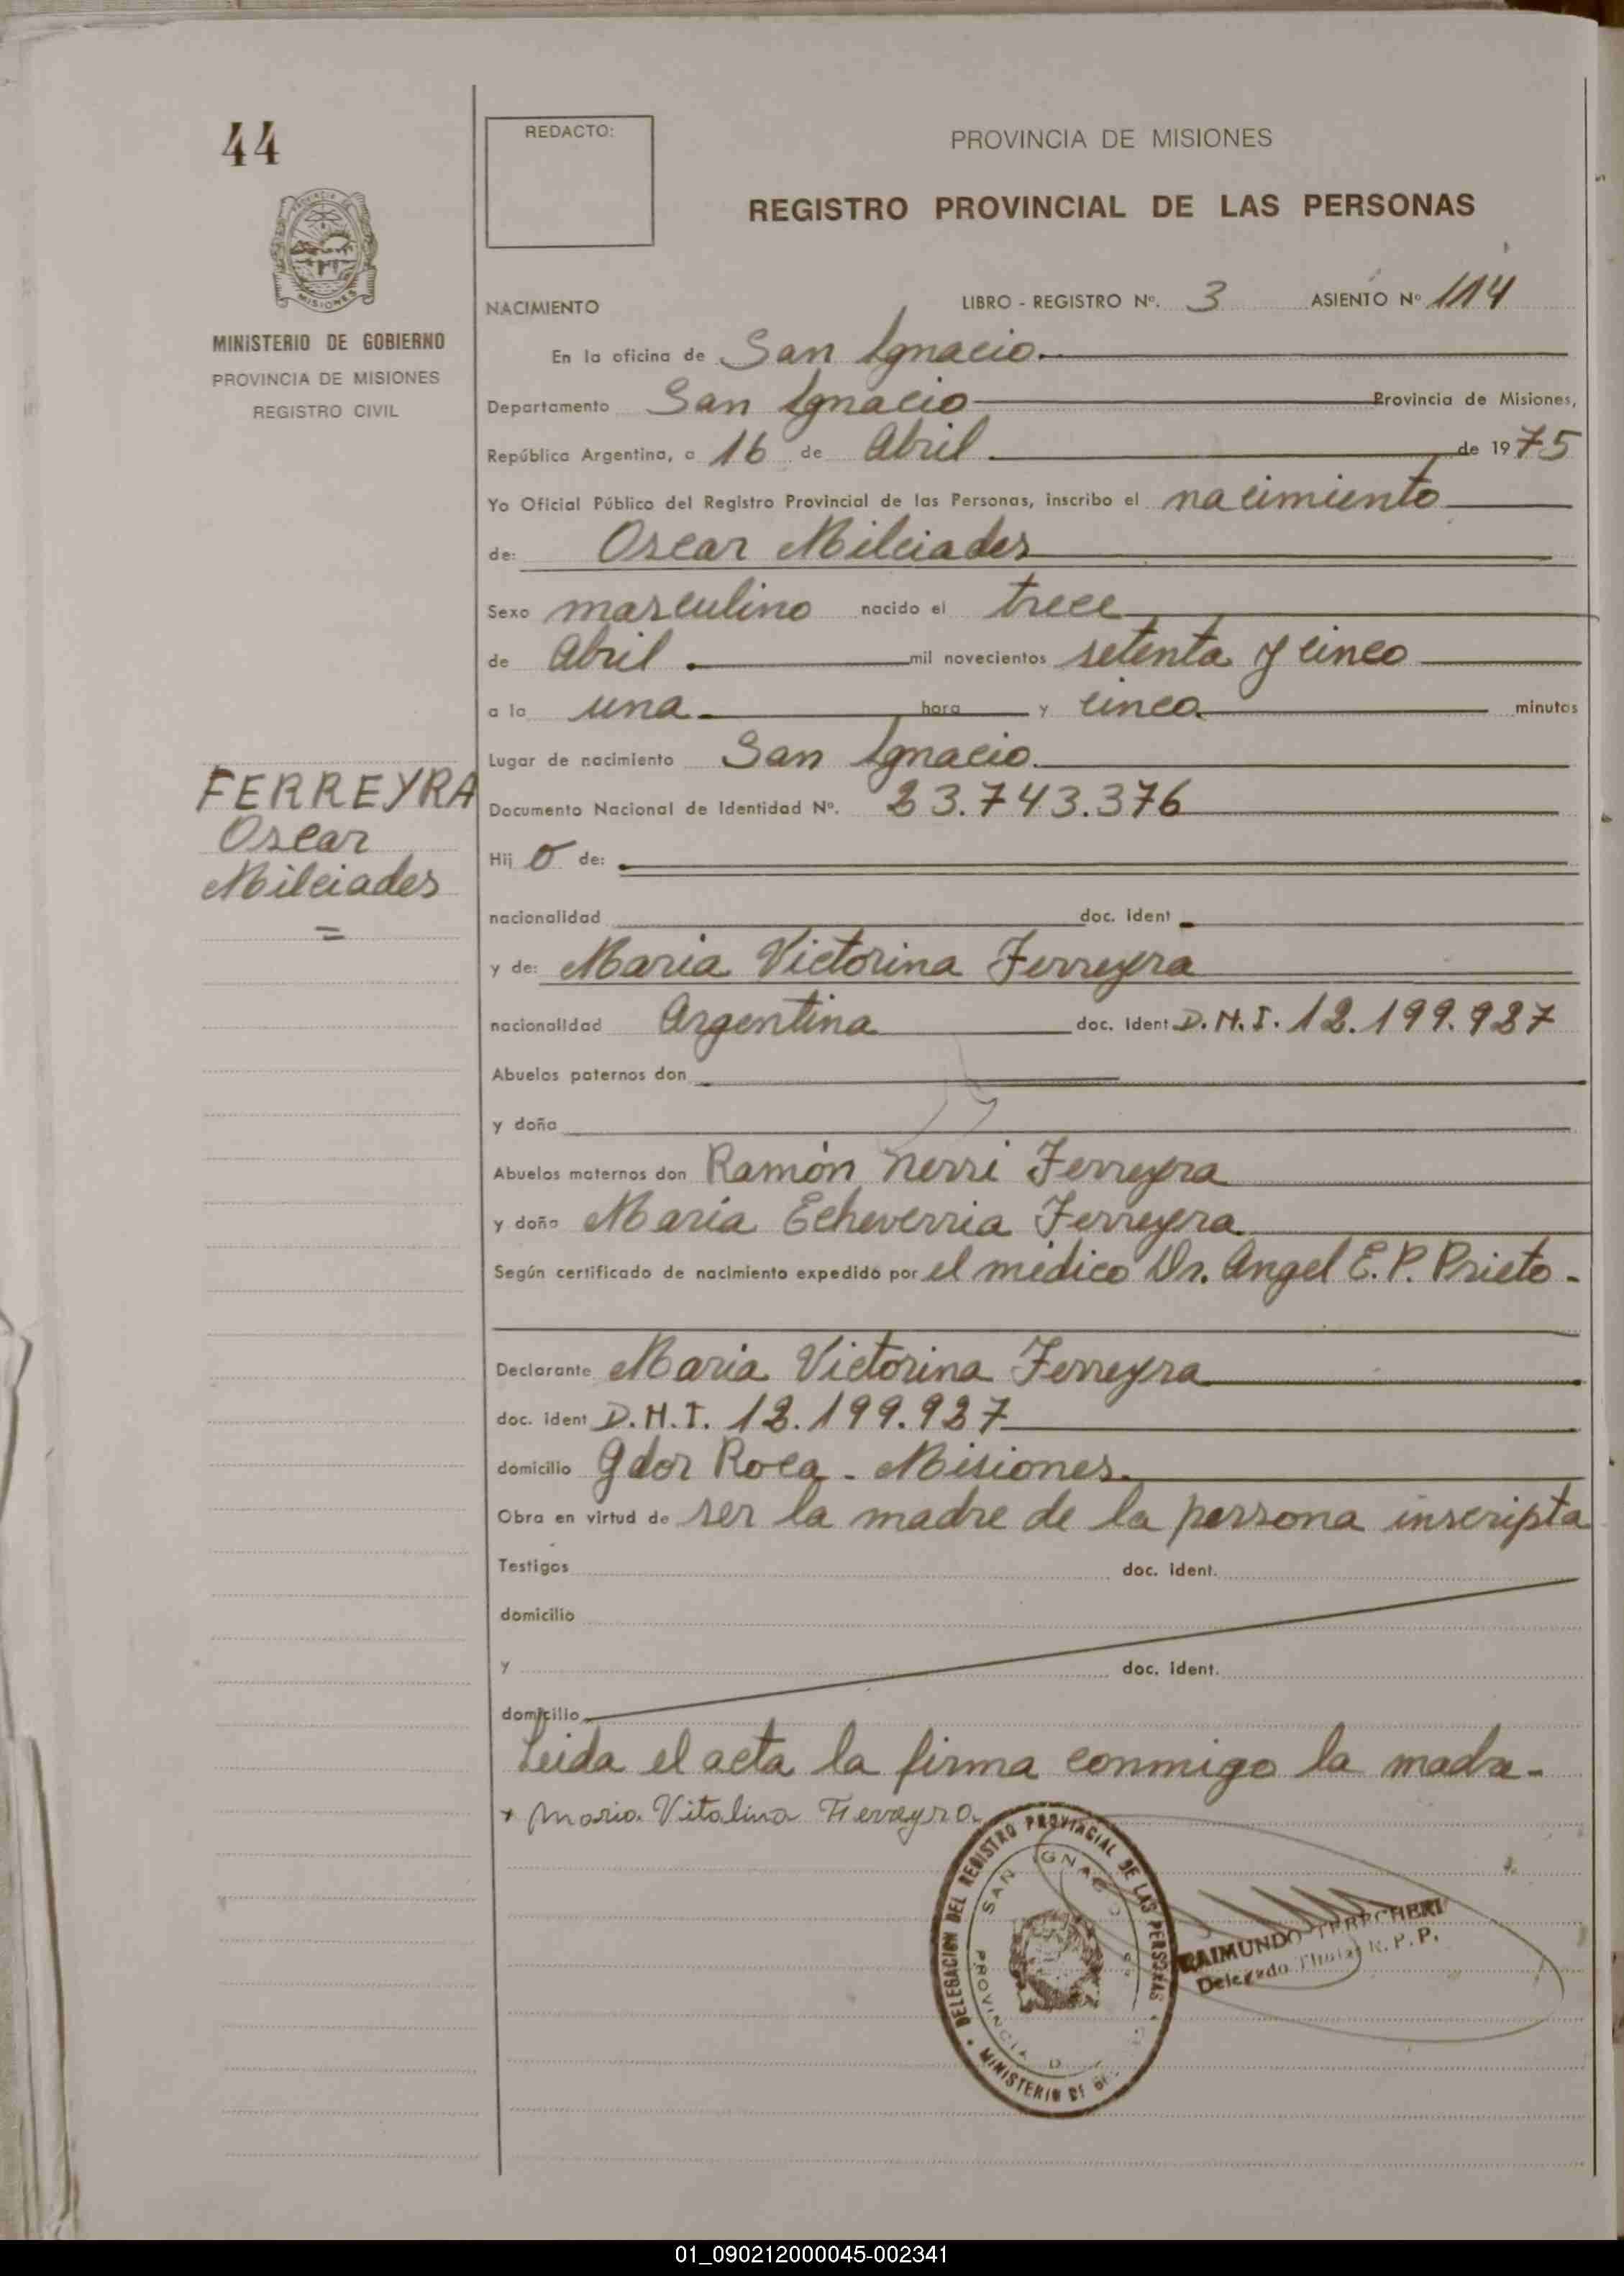 44
REDACTO:
PROVINCIA DE MISIONES
REGISTRO PROVINCIAL DE LAS PERSONAS
MISIONES
MINISTERIO DE GOBIERNO
PROVINCIA DE MISIONES
REGISTRO CIVIL
NACIMIENTO
LIBRO - REGISTRO Nº. 3 ASIENTO Nº 114
En la oficina de San Ignacio.
Departamento San Ignacio Provincia de Misiones,
República Argentina, a 16 de Abril de 1975
Yo Oficial Público del Registro Provincial de las Personas, inscribo el nacimiento
de: Oscar Milciades
Sexo masculino nacido el trece
de Abril. mil novecientos setenta y cinco
a la una hora y cinco minutos
Lugar de nacimiento San Ignacio.
FERREYRA
Oscar
Milciades
=
Documento Nacional de Identidad Nº. 23.743.376
Hij o de:
nacionalidad doc. ident
y de: Maria Victorina Ferreyra
nacionalidad Argentina doc. ident D.N.I. 12.199.927
Abuelos paternos don
y doña
Abuelos maternos don Ramón Nerri Ferreyra
y doña Maria Echeverria Ferreyra
Según certificado de nacimiento expedido por el médico Dr. Angel E. P. Prieto.
Declarante Maria Victorina Ferreyra
doc. ident D.N.I. 12.199.927
domicilio Gdor Roca - Misiones.
Obra en virtud de ser la madre de la persona inscripta
Testigos doc. ident.
domicilio
y doc. ident.
domicilio
Leida el acta la firma conmigo la madre.
+ Maria Vitalina Fierreyra
DELEGACION DEL REGISTRO PROVINCIAL DE LAS PERSONAS
SAN IGNACIO
PROVINCIA D
MINISTERIO DE
RAIMUNDO TERECHERI
Delegado Titular R. P. P.
01_090212000045-002341